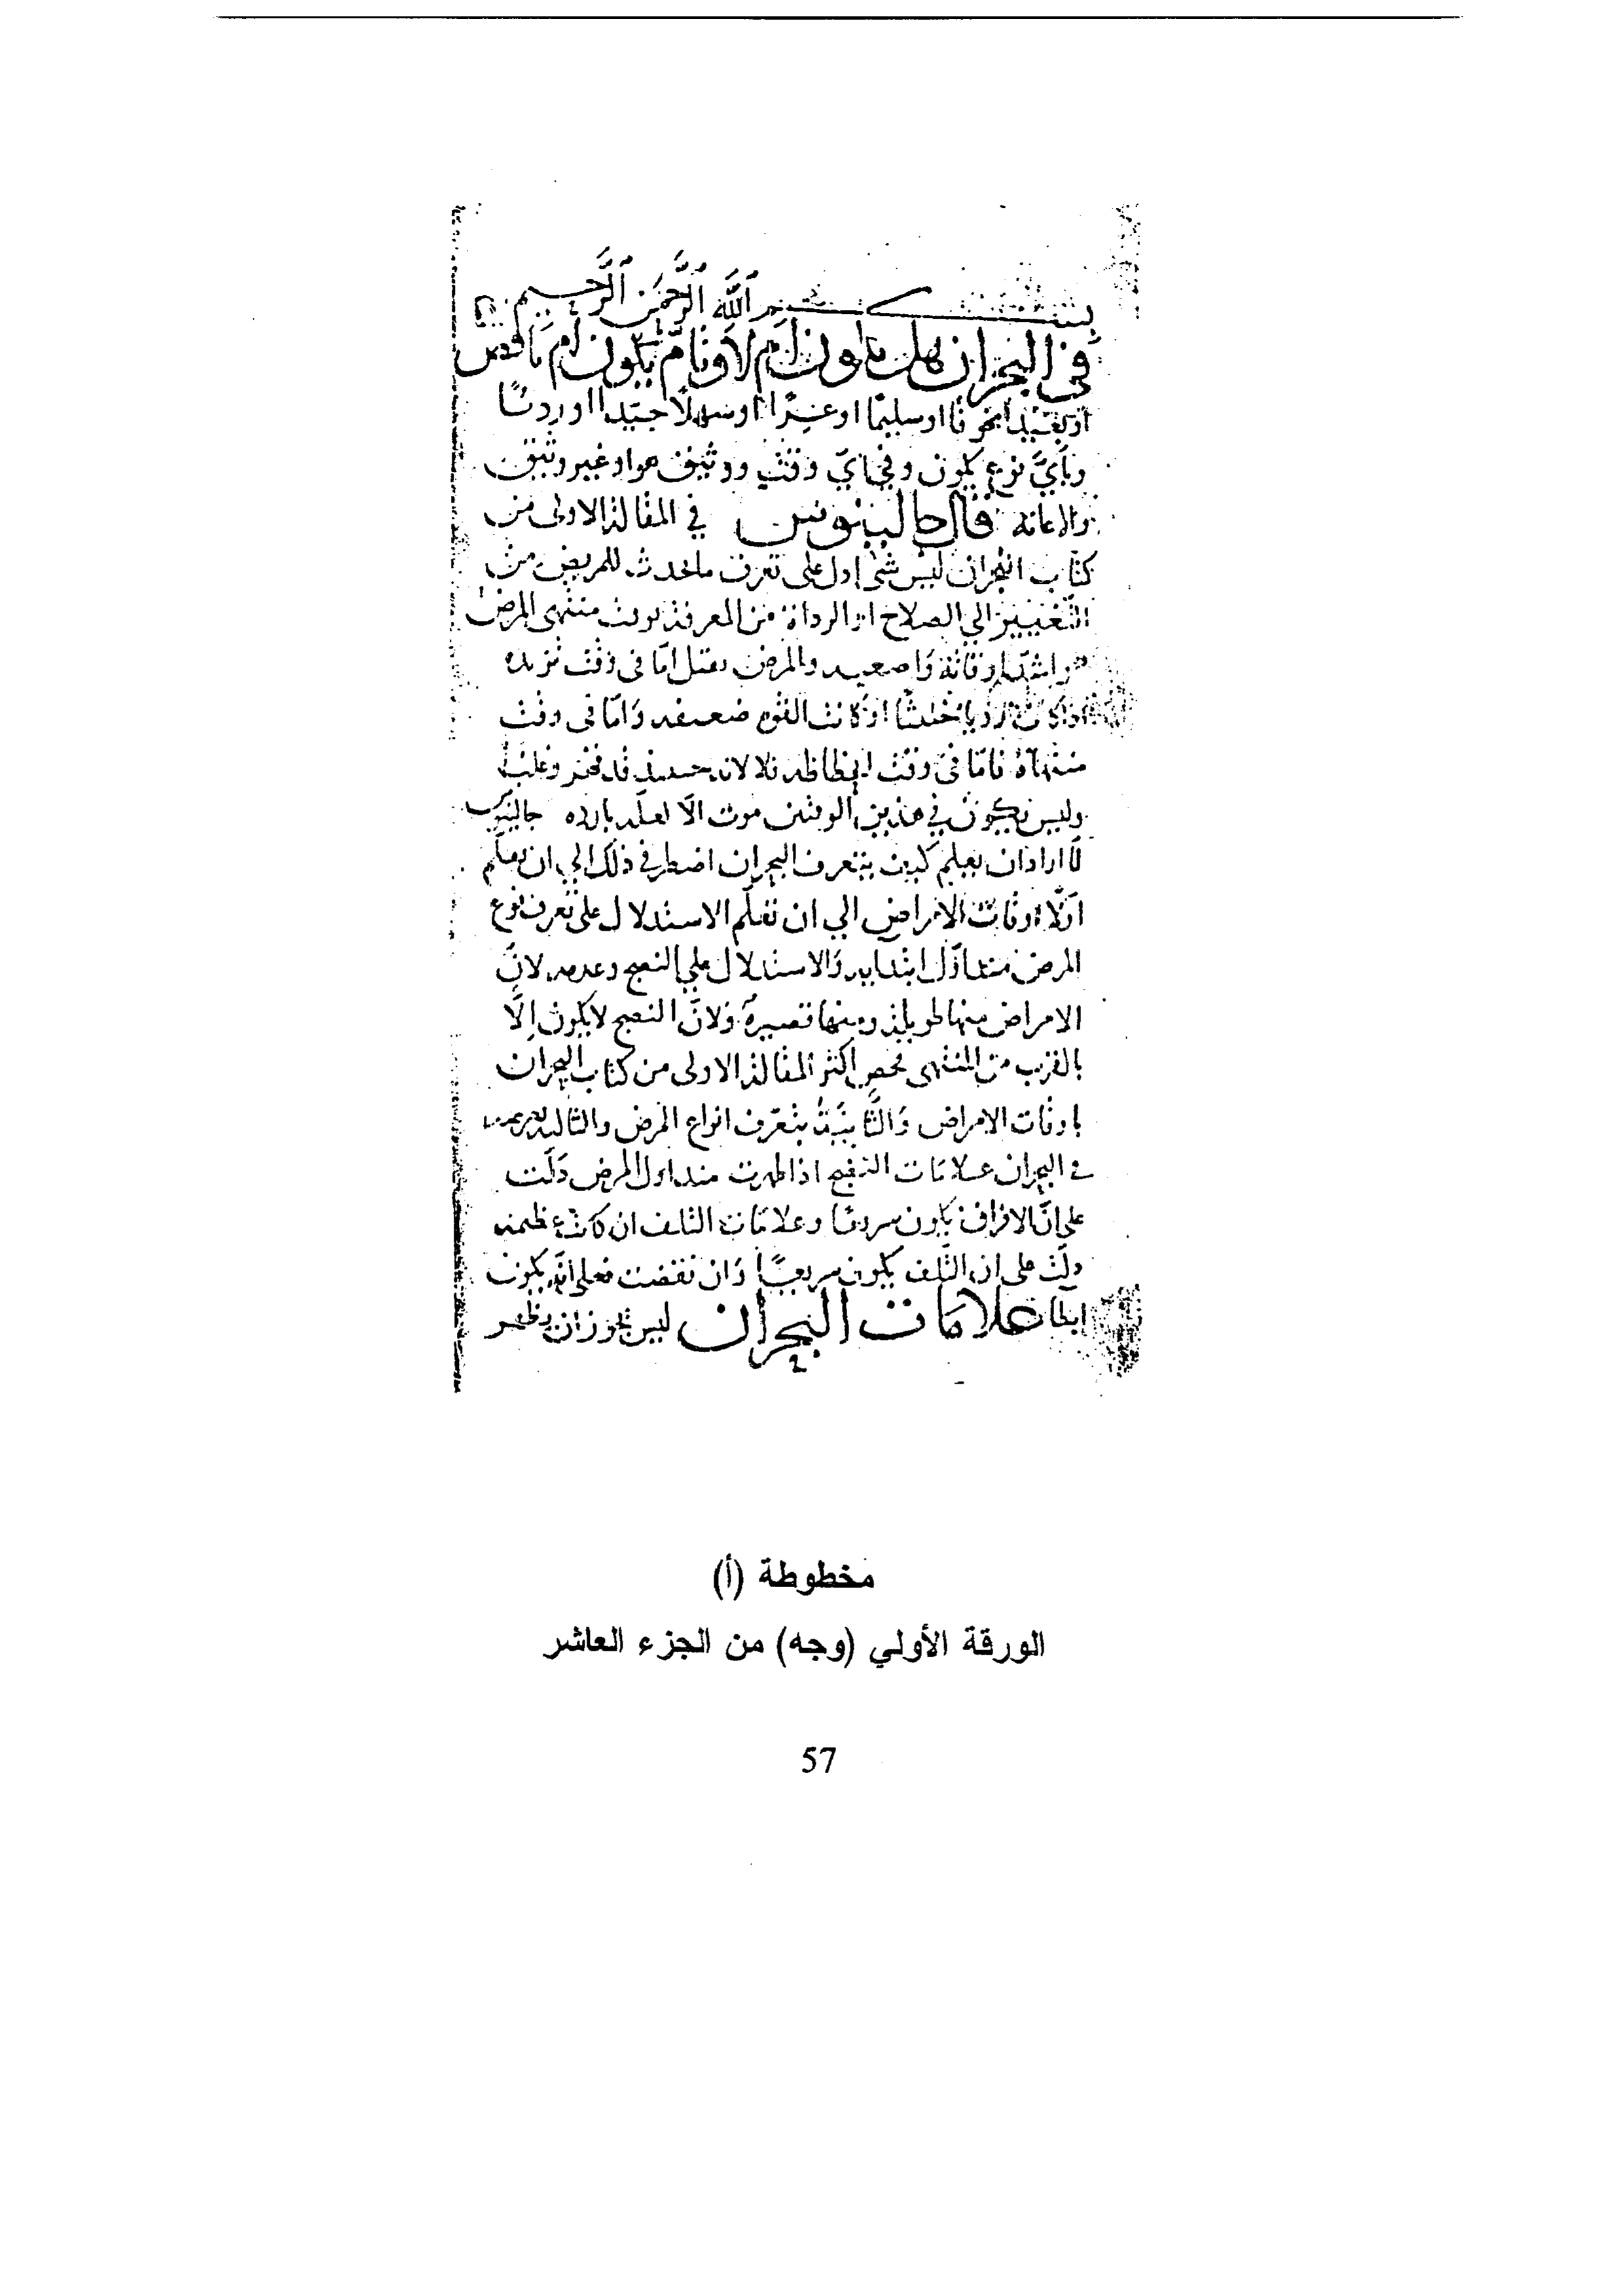 بسم الله الرحمن الرحيم
في البحران هل يكون ام لا وتام يكون ام ناقص
او سليما او عسرا او سهلا جيدا او رديا
وباي نوع يكون وفي اي وقت ووثيق هو او غير وثيق
قال جالينوس في المقالة الاولى من
كتاب البحران ليس شى ادل على تعرف ما يحدث للمريض من
التغيير الي الصلاح او الرداة من المعرفة بوقت منتهى المرض
والمرض يقتل اما فى وقت تزيده
او كانت القوة ضعيفه واما فى وقت
منتهاه فاما فى وقت انحطاطه فلا لانه حينئذ قد قهر وغلب
وليس يكون في هذين الوقتين موت الا لعلة بارده جالينوس
لما اراد ان يعلم كيف يتعرف البحران اضطر في ذلك الي ان يعلم
اولا اوقات الامراض الي ان تعلم الاستدلال على تعرف نوع
المرض منذ اول ابتدايه والاستدلال علي النضج وعدمه لان
الامراض منها طويلة ومنها قصيرة ولان النضج لا يكون الا
بالقرب من المنتهى فخص اكثر المقالة الاولى من كتاب البحران
باوقات الامراض والثانية بتعرف انواع المرض والثالثة
في البحران علامات النضج اذا ظهرت منذ اول المرض دلت
على ان الافراق يكون سريعا وعلامات التلف ان كانت عظيمة
دلت على ان التلف يكون سريعا وان نقصت فعلى انه يكون
ابطا علامات البحران ليس يجوز ان يظهر
مخطوطة (أ)
الورقة الأولي (وجه) من الجزء العاشر
57